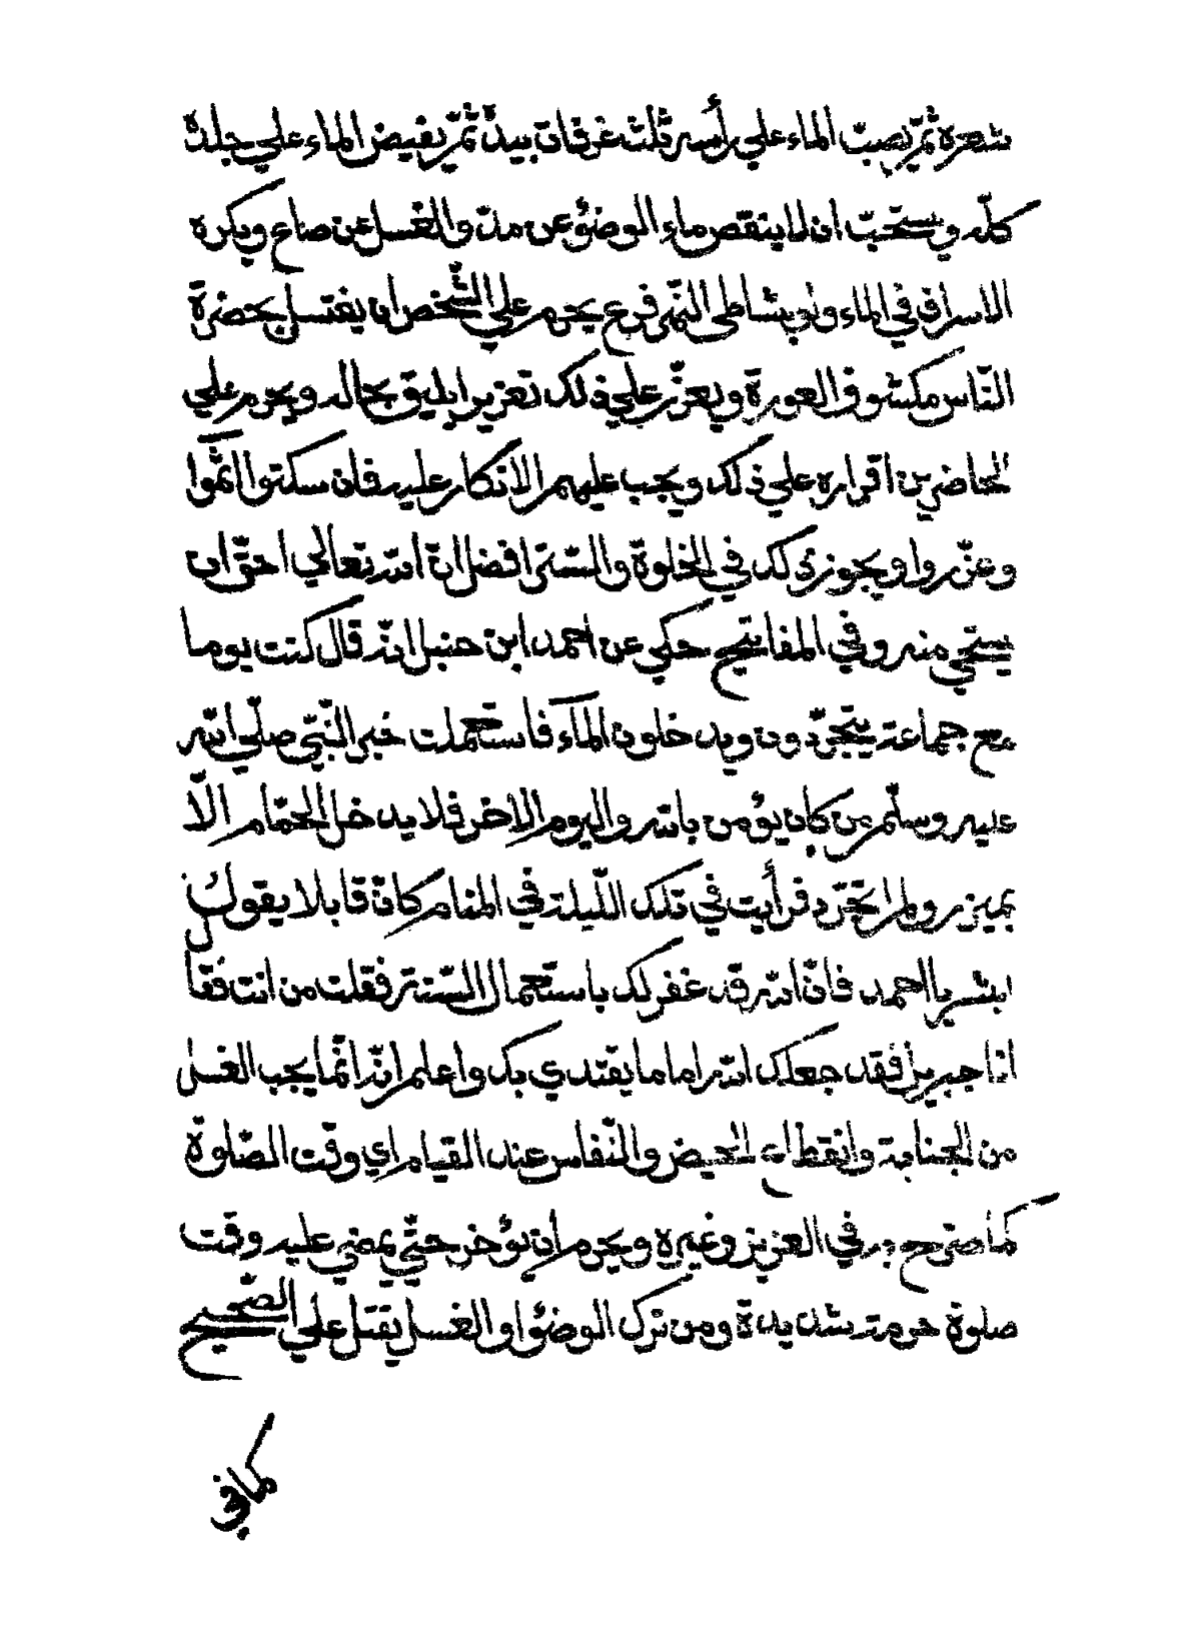 شعره ثمّ يصبّ الماء علي رأسه ثلث غرفات بيده ثمّ يفيض الماء علي جلده
كلّه ويستحبّ ان لا ينقص ماء الوضؤ عن مدّ والغسل عن صاع ويكره
الاسراف في الماء ولو بشاطئ النّهر فرع يحرم علي الشّخص ان يغتسل بحضرة
النّاس مكشوف العورة ويعزّر علي ذلك تعزيرا يليق بحاله ويحرم علي
الحاضرين اقراره علي ذلك ويجب عليهم الانكار عليه فان سكتوا اثّموا
وعزّروا ويجوز ذلك في الخلوة والستر افضل لانّ الله تعالي احقّ ان
يستحي منه وفي المفاتيح حكي عن احمد ابن حنبل انّه قال كنت يوما
مع جماعة يتجرّدون ويدخلون الماء فاستعملت خبر النّبيّ صلّي الله
عليه وسلّم من كان يؤمن بالله واليوم الاخر فلا يدخل الحمّام الّا
بميزر ولم اتجرّد فرأيت في تلك اللّيلة في المنام كانّ قايلا يقول
ابشر يا احمد فانّ الله قد غفر لك باستعمال السّنة فقلت من انت فقا
انا جبريل فقد جعلك الله اماما يقتدي بك واعلم انّه انّما يجب الغسل
من الجنابة وانقطاع الحيض والنّفاس عند القيام اي وقت الصّلوة
كما صرّح به في العزيز وغيره ويحرم ان يؤخر حتّي يمضي عليه وقت
صلوة حرمة شديدة ومن ترك الوضؤ او الغسل يقتل علي الصّحيح
كما في